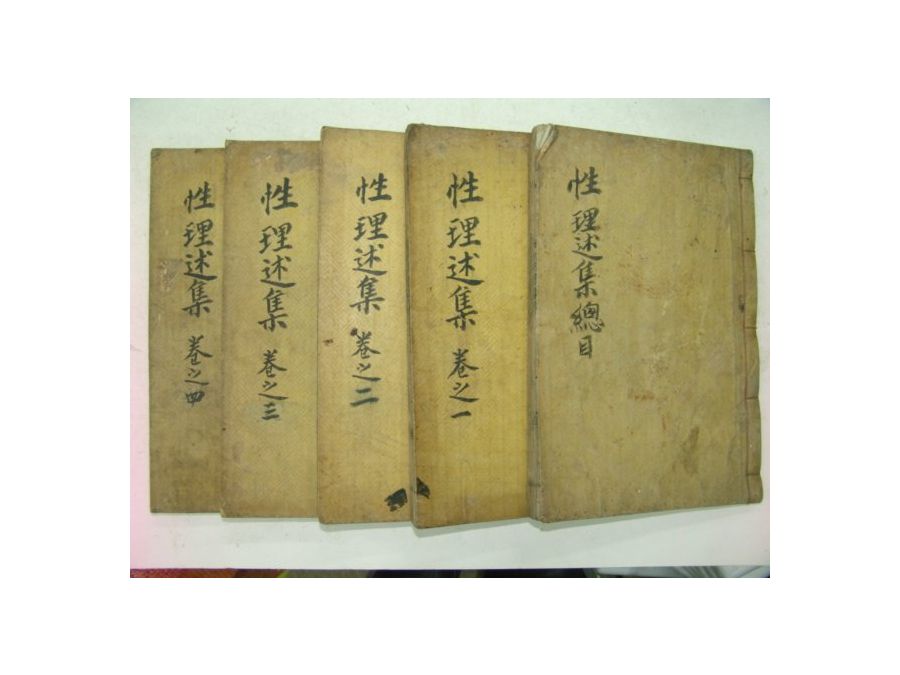 性理述集總目
性理述集 卷之一
性理述集 卷之二
性理述集 卷之三
性理述集 卷之四